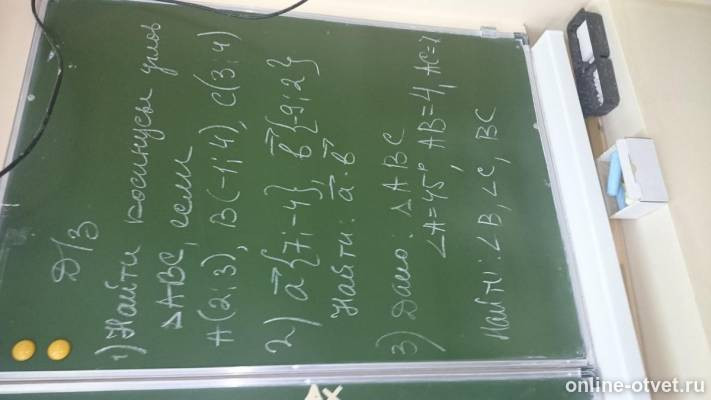 Д/З
1) Найти косинусы углов
△ABC, если
A(2;3), B(-1;4), C(3;4)
2) a{7;-4}, b{-9;2}
Найти: a·b
3) Дано: △ABC
∠A=45°, AB=4, AC=7
Найти: ∠B, ∠C, BC
AX
online-otvet.ru